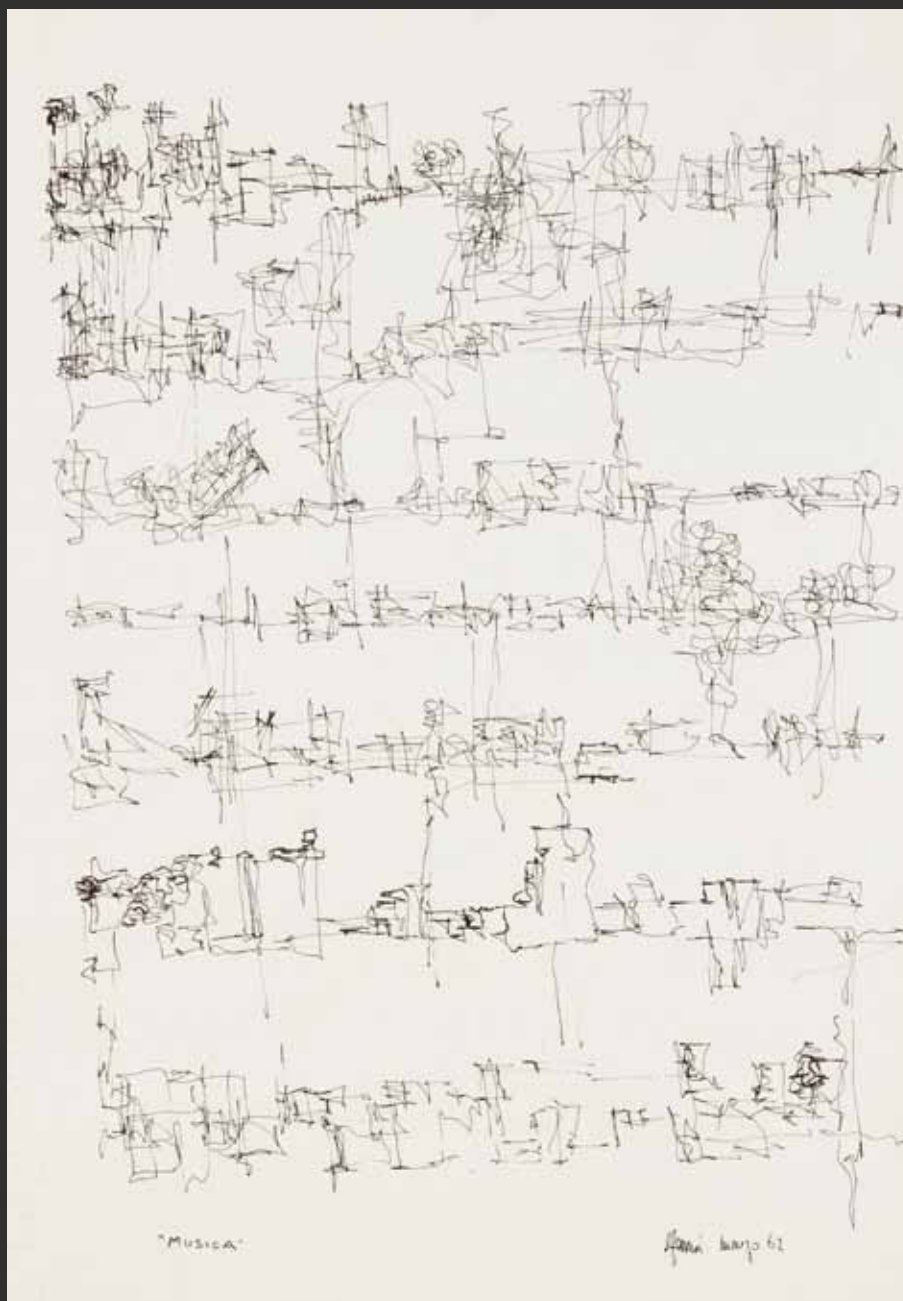 "MUSICA"
marzo 62